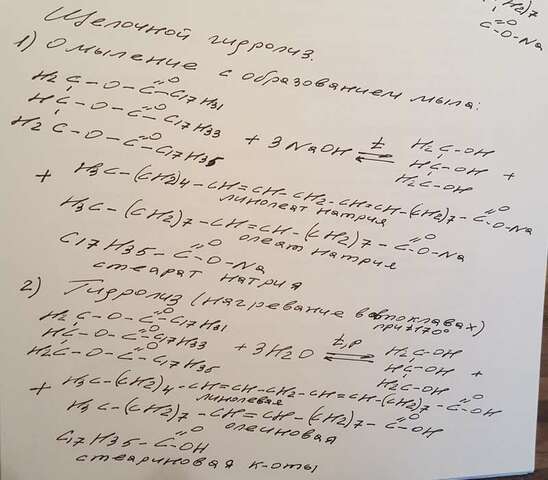 (CH2)7
C=O
O-Na
Щелочной гидролиз.
1) Омыление с образованием мыла:
H2C-O-C=O C17H31
HC-O-C=O C17H33
H2C-O-C=O C17H35 + 3NaOH t ⇄ H2C-OH
HC-OH +
H2C-OH
+ H3C-(CH2)4-CH=CH-CH2-CH=CH-(CH2)7-C=O O-Na
линолеат натрия
H3C-(CH2)7-CH=CH-(CH2)7-C=O O-Na
олеат натрия
C17H35-C=O O-Na
стеарат натрия
2) Гидролиз (нагревание в автоклавах)
при t170°
H2C-O-C=O C17H31
HC-O-C=O C17H33
H2C-O-C=O C17H35 + 3H2O t,p ⇄ H2C-OH
HC-OH +
H2C-OH
+ H3C-(CH2)4-CH=CH-CH2-CH=CH-(CH2)7-C=O OH
линолевая
H3C-(CH2)7-CH=CH-(CH2)7-C=O OH
олеиновая
C17H35-C=O OH
стеариновая к-оты